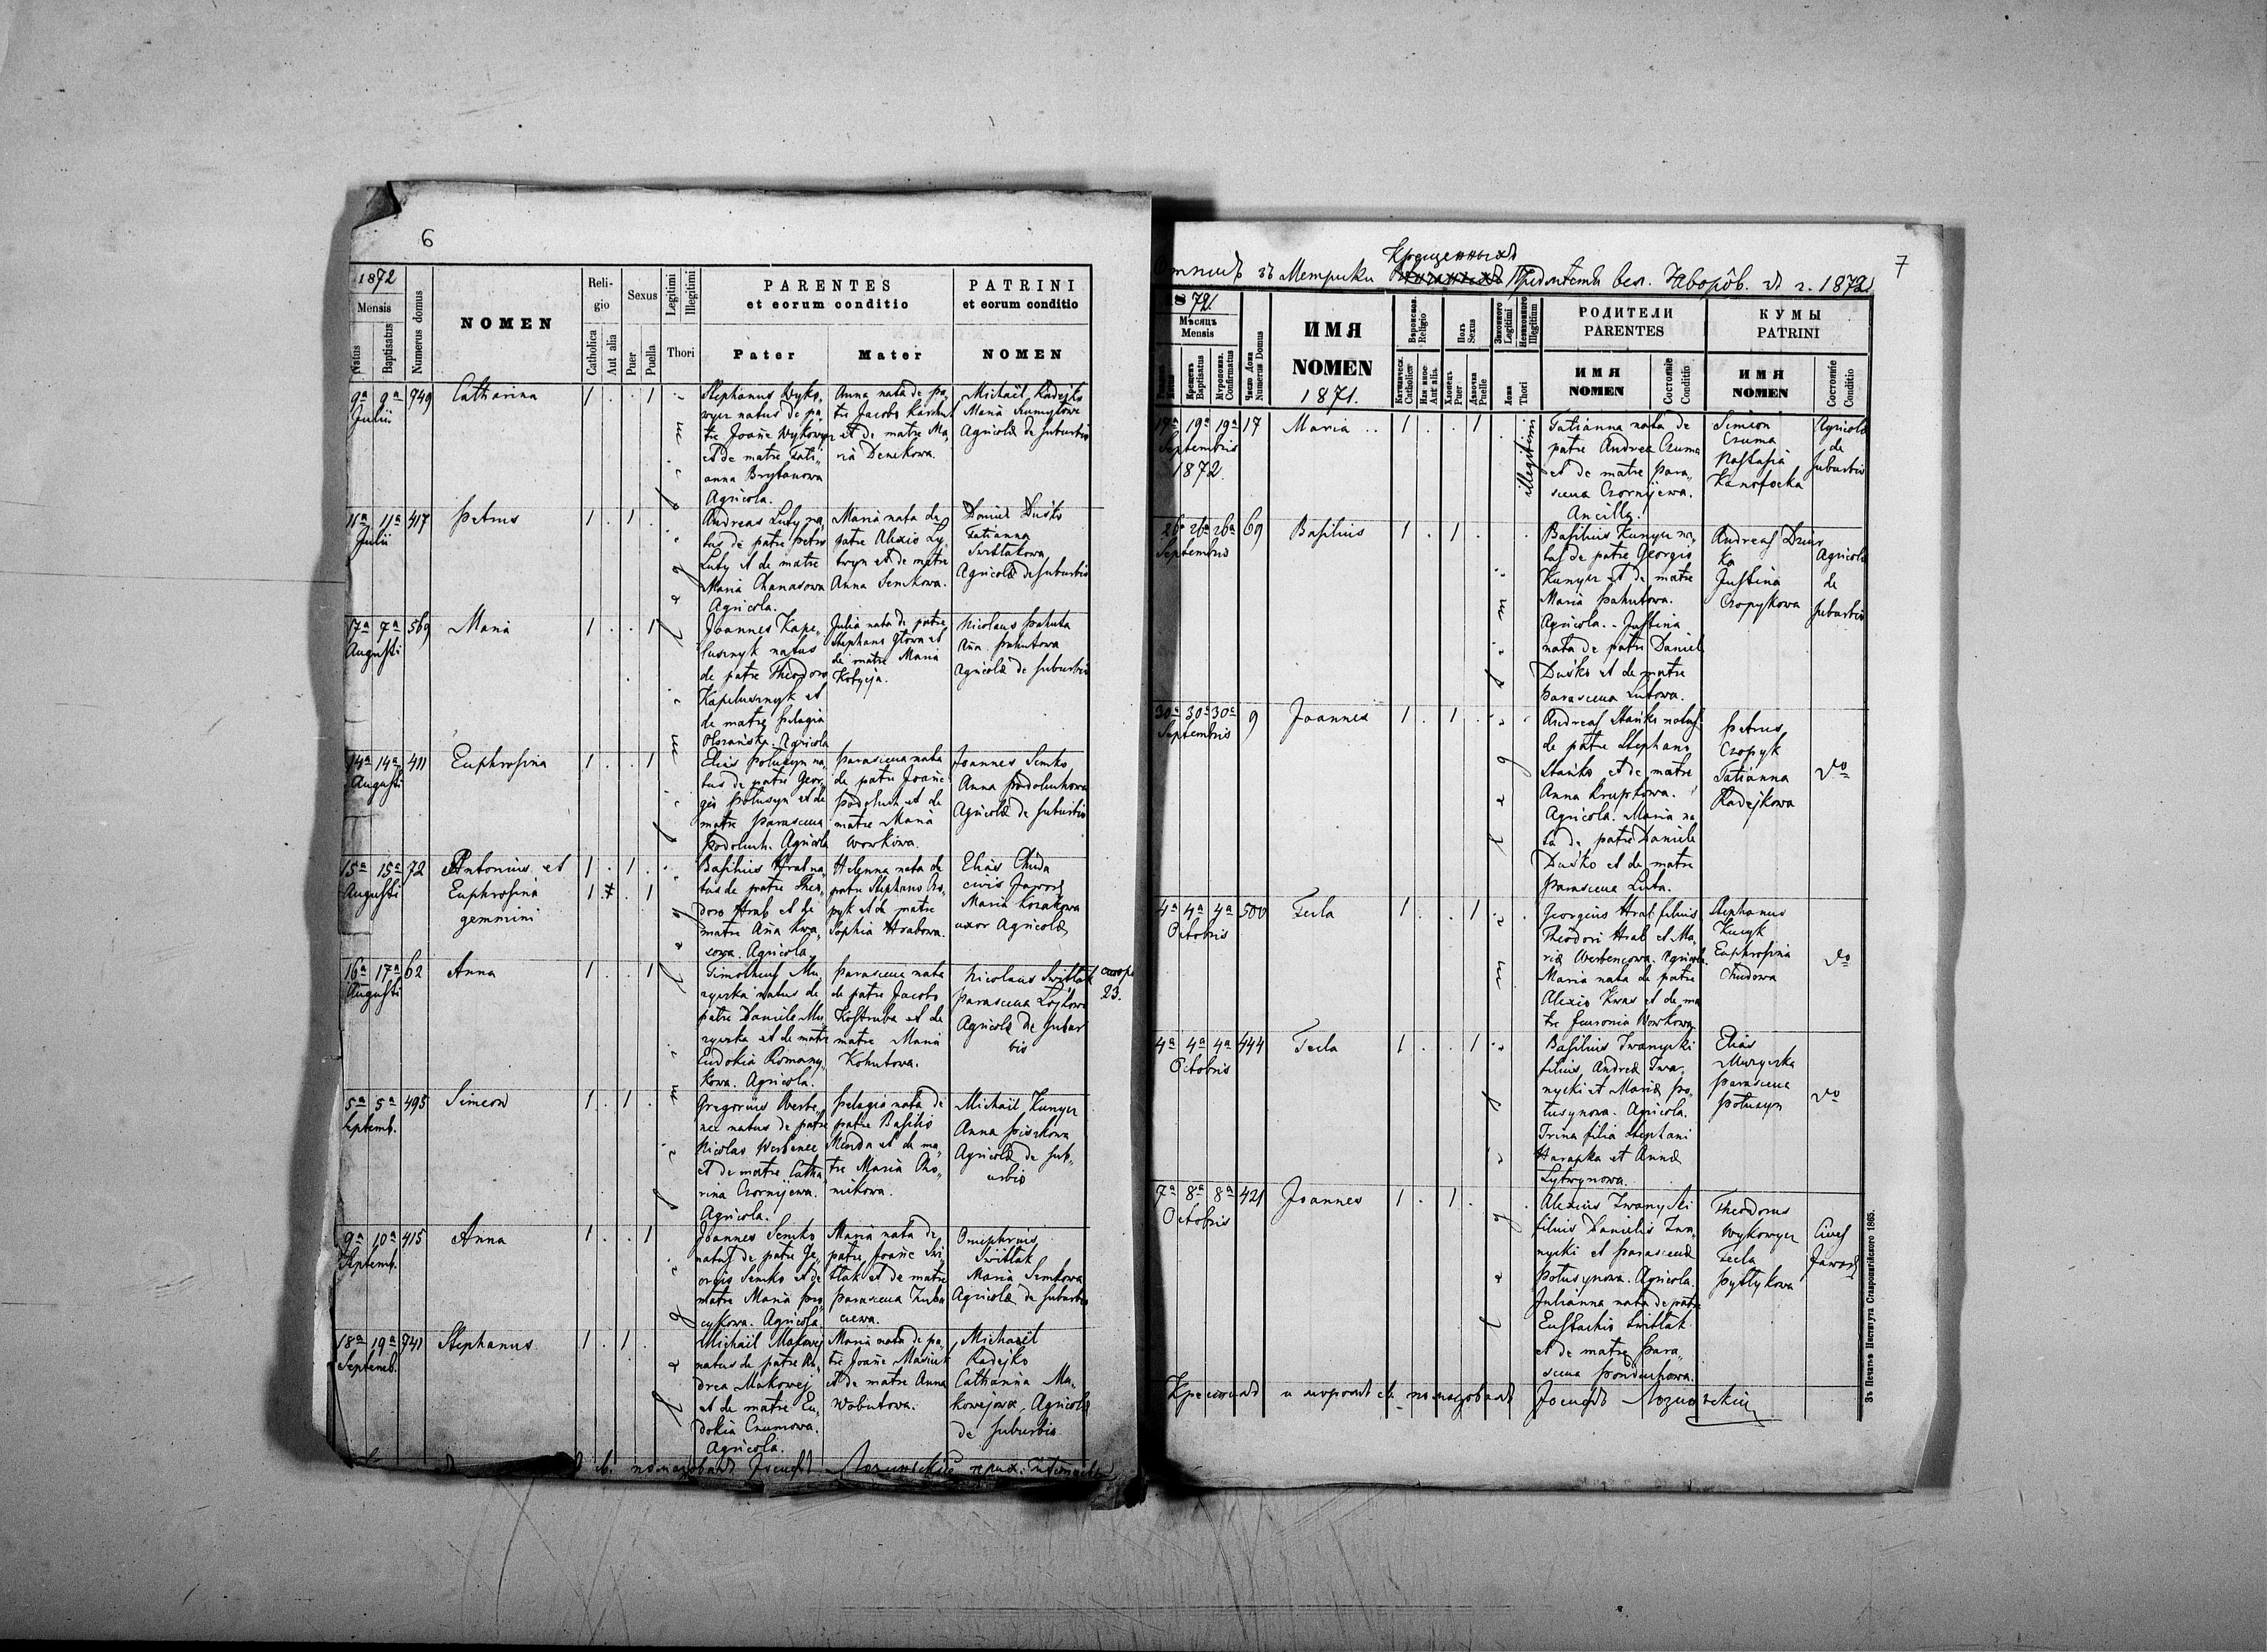 6
1872
Mensis
Natus
Baptisatus
Numerus domus
NOMEN
Reli-
gio
Catholica
Aut alia
Sexus
Puer
Puella
Legitimi
Illegitimi
Thori
PARENTES
et eorum conditio
Pater
Mater
PATRINI
et eorum conditio
NOMEN
9a 9a 749
Julii
Catharina
1 . . 1
Stephanus Wyko-
wyer natus de pa-
tre Joane Wykowyer
et de matre Tati-
anna Brytanowa
Agricola.
Anna nata de pa-
tre Jacobo
et de matre Ma-
ria Denekowa.
Michail Kadejko
Maria
Agricolae de suburbio
11a 11a 417
Julii
Petrus
1 . 1 .
Andreas Luty na-
tus de patre Petro
Luty et de matre
Maria Chanasowa
Agricola.
Maria nata de
patre Alexio Ly-
twyn et de matre
Anna Semkowa.
Daniel Duśko
Tatianna
Switlakowa
Agricolae de suburbio
17a 7a 569
Augusti
Maria
1 . . 1
Joannes Kape-
lusznyk natus
de patre Theodoro
Kapelusznyk et
de matre Pelagia
Agricola
Julia nata de patre
Stephano Głowa et
de matre Maria
Kotycja.
Nicolaus Pahuta
Aña Pahutowa
Agricolae de suburbio
14a 14a 411
Augusti
Euphrosina
1 . . 1
Elias Potusyn na-
tus de patre Geor-
gio Potusyn et de
matre Parascena
Podoluch. Agricola
Parascena nata
de patre Joane
Podoluch et de
matre Maria
Workowa.
Joannes Semko
Anna Podoluchowa
Agricolae de suburbio
15a 15a 72
Augusti
Antonius et
Euphrosina
gemmini
1 . 1 .
1 . 1
Basilius Hrab na-
tus de patre Theo-
doro Hrab et de
matre Aña Kwa-
sowa. Agricola.
Helenna nata de
patre Stephano Cro-
pyk et de matre
Sophia Hrabowa.
Elias Chuda
civis Jawor
Maria Kozakowa
uxor Agricolae
16a 17a 62
Augusti
Anna
1 . . 1
Timotheus Mu-
zyczka natus de
patre Daniele Mu-
zyczka et de matre
Eudokia Romany-
kowa. Agricola.
Parascena nata
de patre Jacobo
Kostruba et de
matre Maria
Kohutowa.
Nicolaus Switlak
Parascena Lojkowa
Agricolae de subur
bio
23.
5a 5a 495
Septemb.
Simeon
1 . 1 .
Gregorius Werbe-
nec natus de patre
Nicolao Werbenec
et de matre Catha
rina Czornijewa.
Agricola.
Pelagia nata de
patre Basilio
Menda et de ma-
tre Maria Cho-
mikowa.
Michail Kunyer
Anna Piszkowa
Agricolae de sub-
urbio
9a 10a 415
Septemb.
Anna
1 . . 1
Joannes Semko
natus de patre Ge-
orgio Semko et de
matre Maria Pro-
cykowa. Agricola.
Maria nata de
patre Joane Swi-
tlak et de matre
Parascena Zuba
czewa.
Onuphrius
Switlak
Maria Semkowa
Agricolae de suburbio
18a 19a 741
Septemb.
Stephanus
1 . 1 .
Michail Makowej
natus de patre An-
drea Makowej
et de matre Eu-
dokia Czumowa.
Agricola.
Maria nata de pa-
tre Joane Masiuk
et de matre Anna
Wobutowa.
Michael
Kadejko
Catharina Ma-
kowejowa Agricolae
de suburbio
св. помазовалъ Іосифъ Лозинскій
7
Крещенныхъ
Отписъ зъ Метрики Предмѣстья вел. Яворôв. зъ г. 1872
1872.
Мѣсяцъ
Mensis
Крещенъ
Baptisatus
Муропомаз.
Confirmatus
Число Дома
Numerus Domus
ИМЯ
NOMEN
1871.
Вѣроиспов.
Religio
Католическ.
Catholica
Или иное
Aut alia.
Полъ
Sexus
Хлопецъ
Puer
Дѣвочка
Puelle
Законного
Legitimi
Незаконного
Illegitium
Ложа
Thori
РОДИТЕЛИ
PARENTES
ИМЯ
NOMEN
Состояніе
Conditio
КУМЫ
PATRINI
ИМЯ
NOMEN
Состояніе
Conditio
17a 19a 19a 17
Septembris
1872.
Maria
1 . . 1
illegitimi
Tatianna nata de
patre Andrea Czuma
et de matre Para-
scena Czornijewa.
Ancilla.
Simeon
Czuma
Nastasia
Kanofocka
Agricolae
de
suburbio
26a 26a 26a 69
Septembris
Basilius
1 . 1 .
Basilius Kunyer na-
tus de patre Georgio
Kunyer et de matre
Maria Pahutowa.
Agricola. Justina
nata de patre Daniel
Duśko et de matre
Parascena Lutowa.
Andreas Dziur
ka
Justina
Cropykowa
Agricolae
de
suburbio
30a 30a 30a 9
Septembris
Joannes
1 . 1 .
Andreas Stańko natus
de patre Stephano
Stańko et de matre
Anna Krupkowa.
Agricola. Maria na
ta de patre Daniele
Duśko et de matre
Parascena Luta.
Petrus
Cropyk
Tatianna
Kadejkowa
do
4a 4a 4a 500
Octobris
Tecla
1 . . 1
Georgius Hrab filius
Theodori Hrab et Ma-
riae Werbencowa. Agricola.
Maria nata de patre
Alexio Kwas et de ma
tre Fewronia Workowa
Stephanus
Kucyk
Euphrosina
Chudowa
do
4a 4a 4a 444
Octobris
Tecla
1 . . 1
Basilius Iwanycki
filius Andreae Iwa-
nycki et Mariae Po-
tusynowa. Agricola.
Irina filia Stephani
Harapka et Annae
Lytwynowa.
Elias
Muzyczka
Parascena
Potusyn
do
7a 8a 8a 421
Octobris
Joannes
1 . 1 .
Alexius Iwanycki
filius Danielis Iwa-
nycki et Parascenae
Potusynowa. Agricola.
Julianna nata de patre
Eustachio Switlak
et de matre Para-
scena Ponduchowa.
Theodorus
Wykowyer
Tecla
Pyttykowa
Cives
Jawor
Крестилъ и муромъ св. помазовалъ Іосифъ Лозинскій
Зъ Печатнѣ Института Ставропигійского 1865.